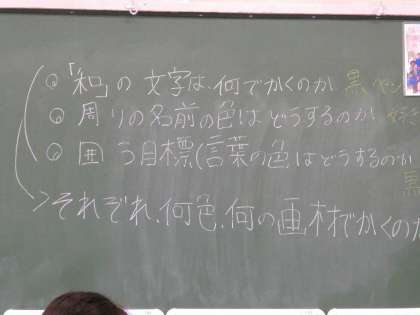 「和」の文字は、何でかくのか 黒ペン
周りの名前の色はどうするのか
囲う目標(言葉の色はどうするのか
黒
それぞれ、何色、何の画材でかくのか